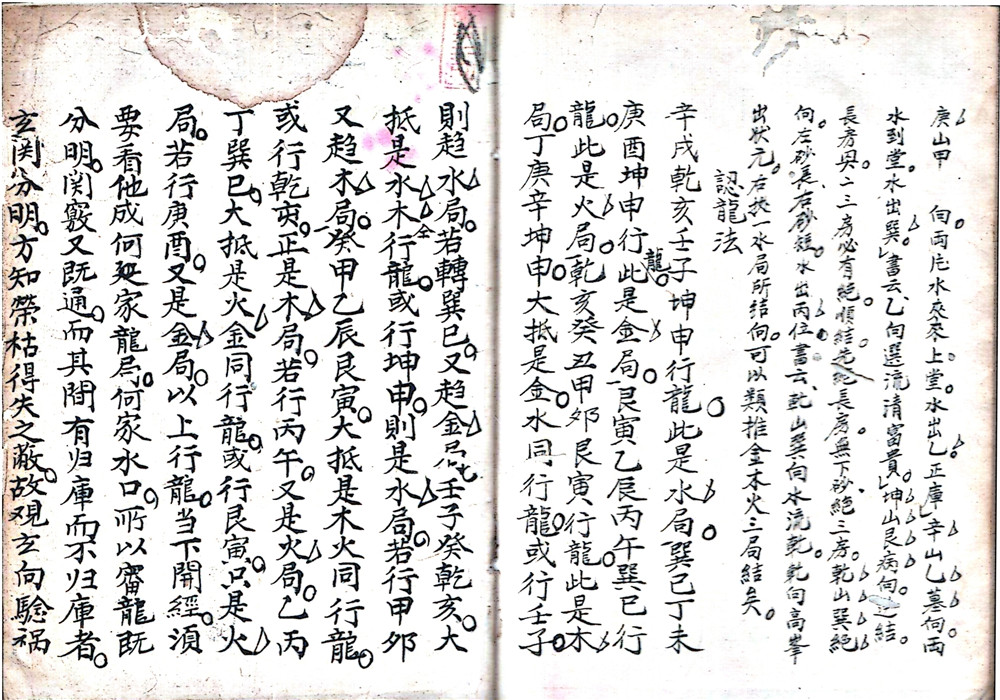 庚山甲向両片水來來上堂水出乙正庫辛山乙墓向両
水到堂水出巽書云乙向選流清富貴坤山艮病向迊結
長房與二三房必有絕順結先絕長房無下砂絕三房乾山巽絕
向左砂長右砂短水出丙位書云乾山巽向水流乾乾向高峯
出状元右挨一水局所結向可以類推金木火三局結矣
認龍法
辛戌乾亥壬子坤申行龍此是水局巽巳丁未
庚酉坤申行龍此是金局艮寅乙辰丙午巽巳行
龍此是火局乾亥癸丑甲夘艮寅行龍此是木
局丁庚辛坤申大抵是金水同行龍或行壬子
則趋水局若轉巽巳又趋金局壬子癸乾亥大
抵是水木仝行龍或行坤申則是水局若行甲夘
又趋木局癸甲乙辰艮寅大抵是木火同行龍
或行乾亥正是木局若行丙午又是火局乙丙
丁巽巳大抵是火金同行龍或行艮寅只是火
局若行庚酉又是金局以上行龍當下開經須
要看他成何家龍局何家水口所以審龍既
分明関竅又既通而其間有归庫而不归庫者
玄関分明方知榮枯得失之蔽故观玄向驗祸